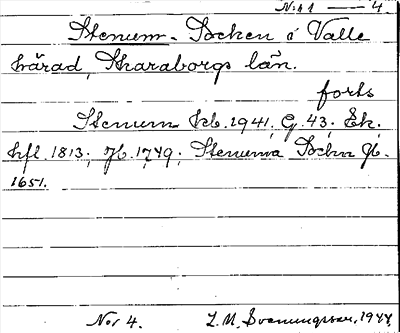 N:o 1 — 4
Stenum - Socken i Valle
härad, Skaraborgs län.
forts
Stenum kb. 1941, G. 43; Ek.
hfl. 1813; Jb. 1749; Stenuma Sochn Jb.
1651.
N:o 4.
1944.